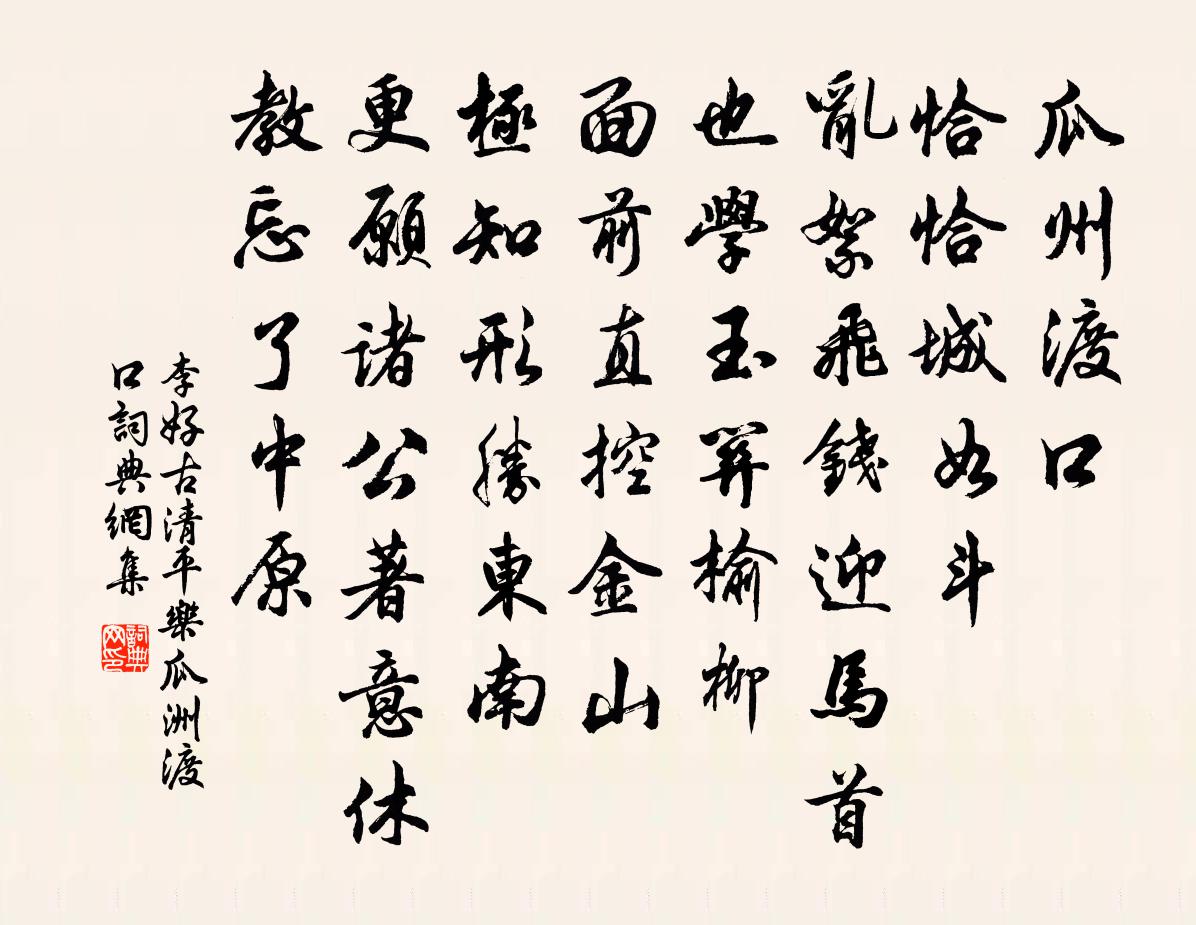 瓜州渡口
恰恰城如斗
亂絮飛錢迎馬首
也學玉關榆柳
面前直控金山
極知形勝東南
更願諸公著意休
教忘了中原
李好古清平樂瓜洲渡
口詞典網集
詞典
网印